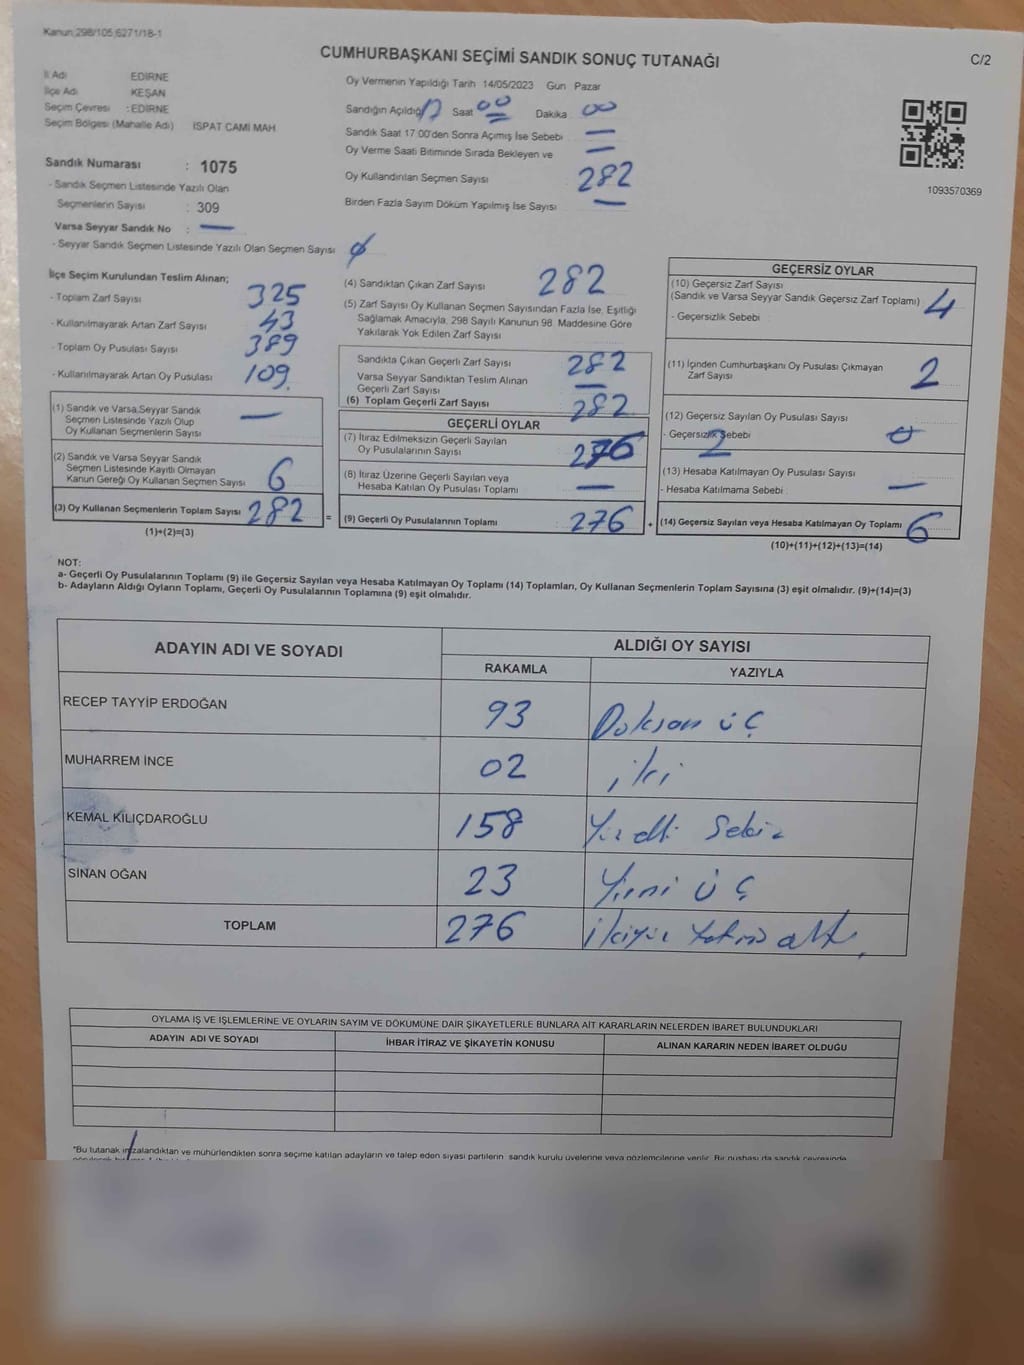 Kanun,298/105,6271/18-1
CUMHURBAŞKANI SEÇİMİ SANDIK SONUÇ TUTANAĞI
C/2
İl Adı EDİRNE
İlçe Adı KEŞAN
Seçim Çevresi : EDİRNE
Seçim Bölgesi (Mahalle Adı) İSPAT CAMİ MAH
Oy Vermenin Yapıldığı Tarih 14/05/2023 Gün Pazar
Sandığın Açıldığı Saat 00 Dakika 00
Sandık Saat 17:00'den Sonra Açımış İse Sebebi —
Oy Verme Saati Bitiminde Sırada Bekleyen ve —
Oy Kullandırılan Seçmen Sayısı 282
Birden Fazla Sayım Döküm Yapılmış İse Sayısı —
1093570369
Sandık Numarası : 1075
- Sandık Seçmen Listesinde Yazılı Olan
Seçmenlerin Sayısı : 309
Varsa Seyyar Sandık No : —
- Seyyar Sandık Seçmen Listesinde Yazılı Olan Seçmen Sayısı
İlçe Seçim Kurulundan Teslim Alınan;
- Toplam Zarf Sayısı 325
- Kullanılmayarak Artan Zarf Sayısı 43
- Toplam Oy Pusulası Sayısı 389
- Kullanılmayarak Artan Oy Pusulası 109.
(1) Sandık ve Varsa Seyyar Sandık
Seçmen Listesinde Yazılı Olup
Oy Kullanan Seçmenlerin Sayısı —
(2) Sandık ve Varsa Seyyar Sandık
Seçmen Listesinde Kayıtlı Olmayan
Kanun Gereği Oy Kullanan Seçmen Sayısı 6
(3) Oy Kullanan Seçmenlerin Toplam Sayısı 282
(1)+(2)=(3)
(4) Sandıktan Çıkan Zarf Sayısı 282
(5) Zarf Sayısı Oy Kullanan Seçmen Sayısından Fazla İse, Eşitliği
Sağlamak Amacıyla, 298 Sayılı Kanunun 98. Maddesine Göre
Yakılarak Yok Edilen Zarf Sayısı
Sandıkta Çıkan Geçerli Zarf Sayısı 282
Varsa Seyyar Sandıktan Teslim Alınan
Geçerli Zarf Sayısı —
(6) Toplam Geçerli Zarf Sayısı 282
GEÇERLİ OYLAR
(7) İtiraz Edilmeksizin Geçerli Sayılan
Oy Pusulalarının Sayısı 276
(8) İtiraz Üzerine Geçerli Sayılan veya
Hesaba Katılan Oy Pusulası Toplamı —
= (9) Geçerli Oy Pusulalarının Toplamı : 276 +
GEÇERSİZ OYLAR
(10) Geçersiz Zarf Sayısı
(Sandık ve Varsa Seyyar Sandık Geçersiz Zarf Toplamı) 4
- Geçersizlik Sebebi
(11) İçinden Cumhurbaşkanı Oy Pusulası Çıkmayan
Zarf Sayısı 2
(12) Geçersiz Sayılan Oy Pusulası Sayısı
- Geçersizlik Sebebi 2
(13) Hesaba Katılmayan Oy Pusulası Sayısı
- Hesaba Katılmama Sebebi —
(14) Geçersiz Sayılan veya Hesaba Katılmayan Oy Toplamı 6
(10)+(11)+(12)+(13)=(14)
NOT:
a- Geçerli Oy Pusulalarının Toplamı (9) ile Geçersiz Sayılan veya Hesaba Katılmayan Oy Toplamı (14) Toplamları, Oy Kullanan Seçmenlerin Toplam Sayısına (3) eşit olmalıdır. (9)+(14)=(3)
b- Adayların Aldığı Oyların Toplamı, Geçerli Oy Pusulalarının Toplamına (9) eşit olmalıdır.
ADAYIN ADI VE SOYADI ALDIĞI OY SAYISI
RAKAMLA YAZIYLA
RECEP TAYYİP ERDOĞAN 93 Doksan üç
MUHARREM İNCE 02 iki
KEMAL KILIÇDAROĞLU 158 Yüz elli Sekiz
SİNAN OĞAN 23 Yirmi Üç
TOPLAM 276 İkiyüz Yetmiş altı
OYLAMA İŞ VE İŞLEMLERİNE VE OYLARIN SAYIM VE DÖKÜMÜNE DAİR ŞİKAYETLERLE BUNLARA AİT KARARLARIN NELERDEN İBARET BULUNDUKLARI
ADAYIN ADI VE SOYADI İHBAR İTİRAZ VE ŞİKAYETİN KONUSU ALINAN KARARIN NEDEN İBARET OLDUĞU
*Bu tutanak imzalandıktan ve mühürlendikten sonra seçime katılan adayların ve talep eden siyasi partilerin sandık kurulu üyelerine veya gözlemcilerine verilir. Bir nüshası da sandık çevresinde